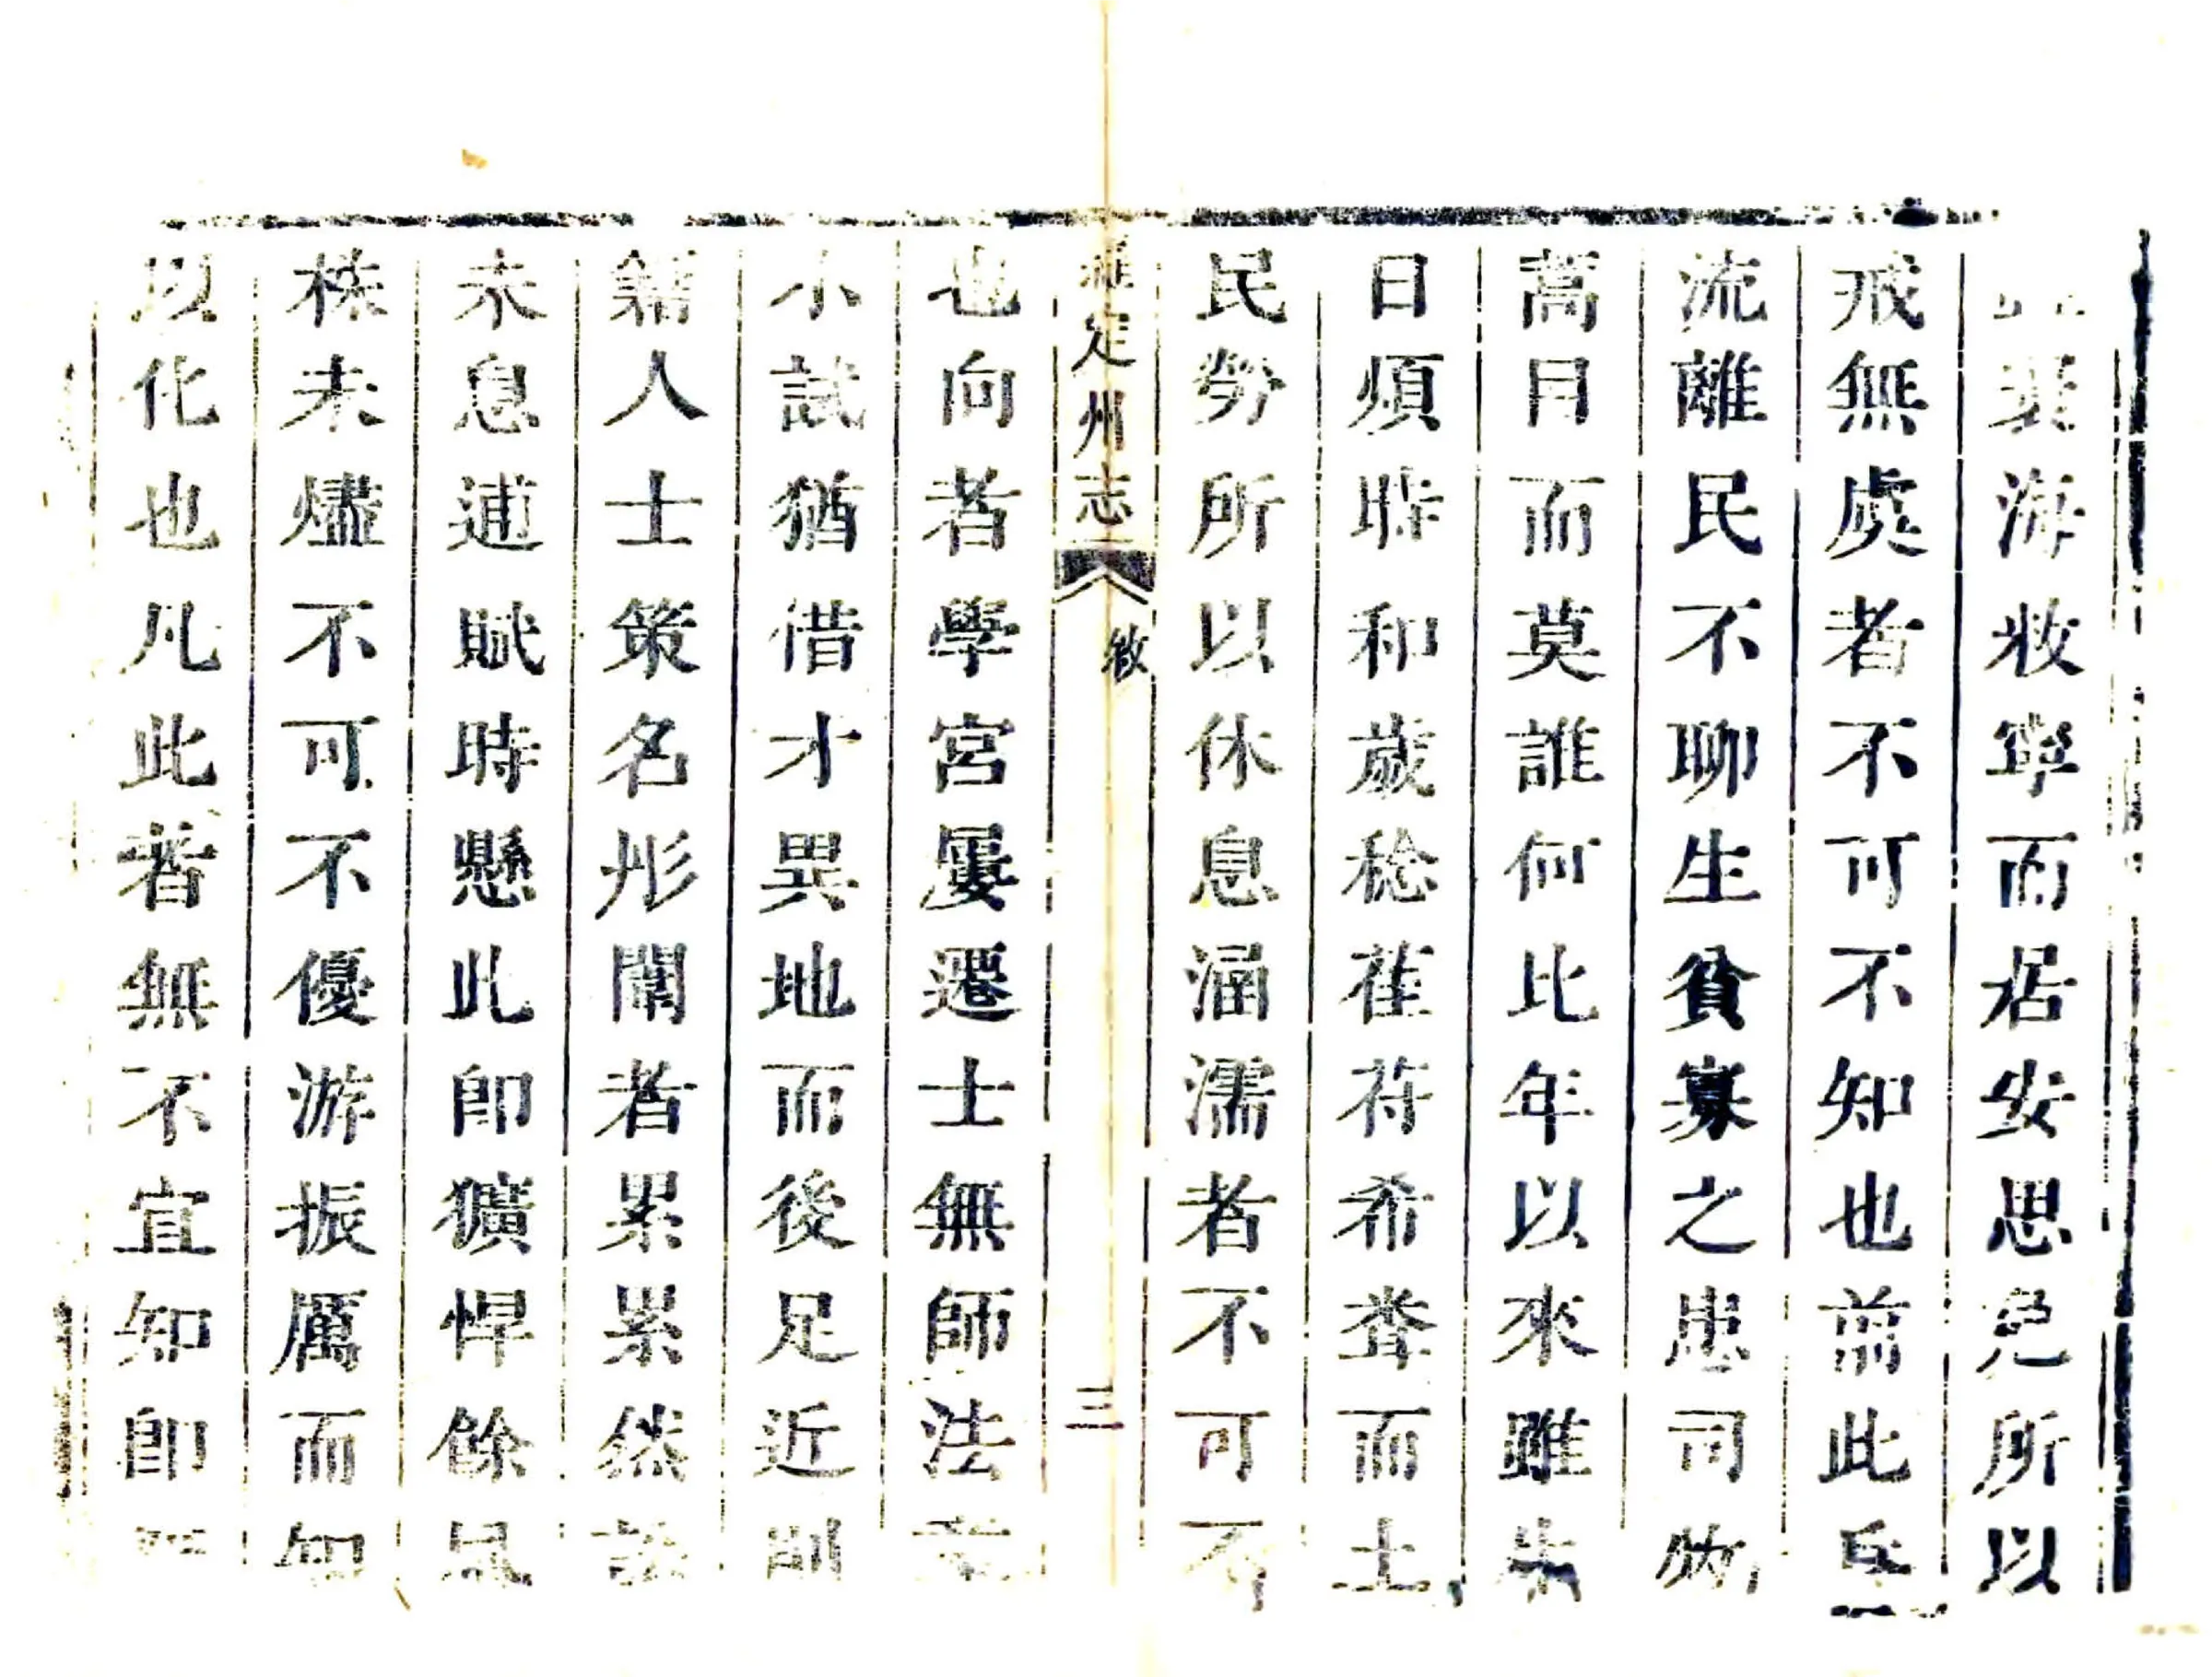 海牧寧而居安思危所以
戒無處者不可不知也前此兵
流離民不聊生貧寡之患司牧
蒿目而莫誰何比年以來雖
日頻時和歲稔萑苻希聳而土
民勞所以休息涵濡者不可不
定州志
敘
三
也向者學宮屢遷士無師法
小試猶借才異地而後足近
籍人士策名彤闈者累累然
未息逋賦時懸此即獷悍餘風
株未燼不可不優游振厲而知
以化也凡此者無不宜知即